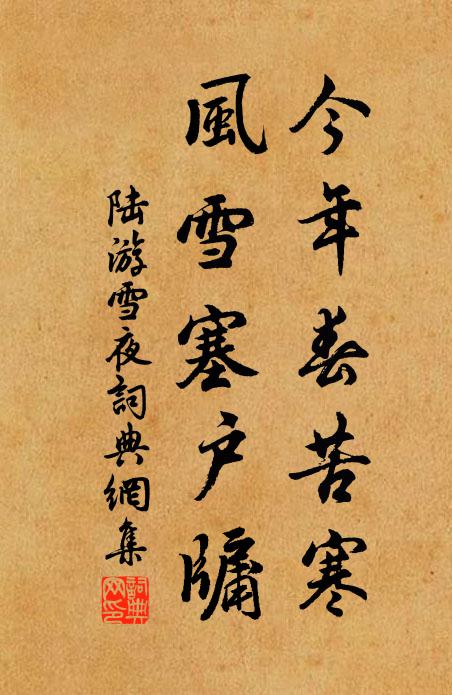 今年春苦寒
風雪塞戶牖
陆游雪夜詞典網集
詞典网印